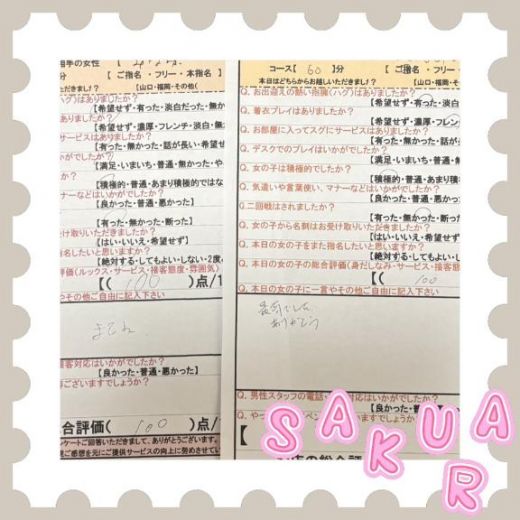 相手の女性
分 【 ご指名 ・ フリー ・ 本指名 】
ただきました!? 【山口・福岡・その他(
ハグ)はありましたか?
【希望せず・有った・淡白だった・無か
ありましたか?
【希望せず・濃厚・フレンチ・淡白・無
サービスはありましたか?
【有った・無かった・話が長い・希望せ
いかがでしたか?
【満足・いまいち・普通・無かった・や
か?
【積極的・普通・あまり積極的ではな
マナーなどはいかがでしたか?
【良かった・普通・悪かった】
【有った・無かった・断った】
け取りいただきましたか?
【はい・いいえ・希望せず】
名したいと思いますか?
【絶対する・してもよい・しない・2度
評価(ルックス・サービス・接客態度・雰囲気)
【( 100 )点/1
やその他ご自由に記入下さい
接客対応はいかがでしたか?
【良かった・普通・悪かった】
ございますでしょうか?
合評価( 100 )点/
ケートご回答いただきまして、ありがとうございます。
ご感想を元にご提供サービスの向上に努めさせてい
コース【 60 】分
本日はどちらからお越しいただきまし!? 【山口・福岡・その他(
Q. お出迎えの熱い抱擁(ハグ)はありましたか?
【希望せず・有った・淡白だった・無か
Q. 着衣プレイはありましたか?
【希望せず・濃厚・フレン
Q. お部屋に入ってスグにサービスはありましたか?
【有った・無かった・話が
Q. デスクでのプレイはいかがでしたか?
【満足・いまいち・普通・無
Q. 女の子は積極的でしたか?
【積極的・普通・あまり積
Q. 気遣いや言葉使い、マナーなどはいかがでしたか?
【良かった・普通
Q. 二回戦はされましたか?
【有った・無かった
Q. 女の子から名刺はお受け取りいただきましたか?
【はい・いいえ・希望せ
Q. 本日の女の子をまた指名したいと思いますか?
【絶対する・してもよい・
Q. 本日の女の子の総合評価(身だしなみ・サービス・接客態
【( 100
Q. 本日の女の子に一言やその他ご自由に記入下さい
最高でした
ありがとう
Q. 男性スタッフの電話・
【良かった・普
SAKURA